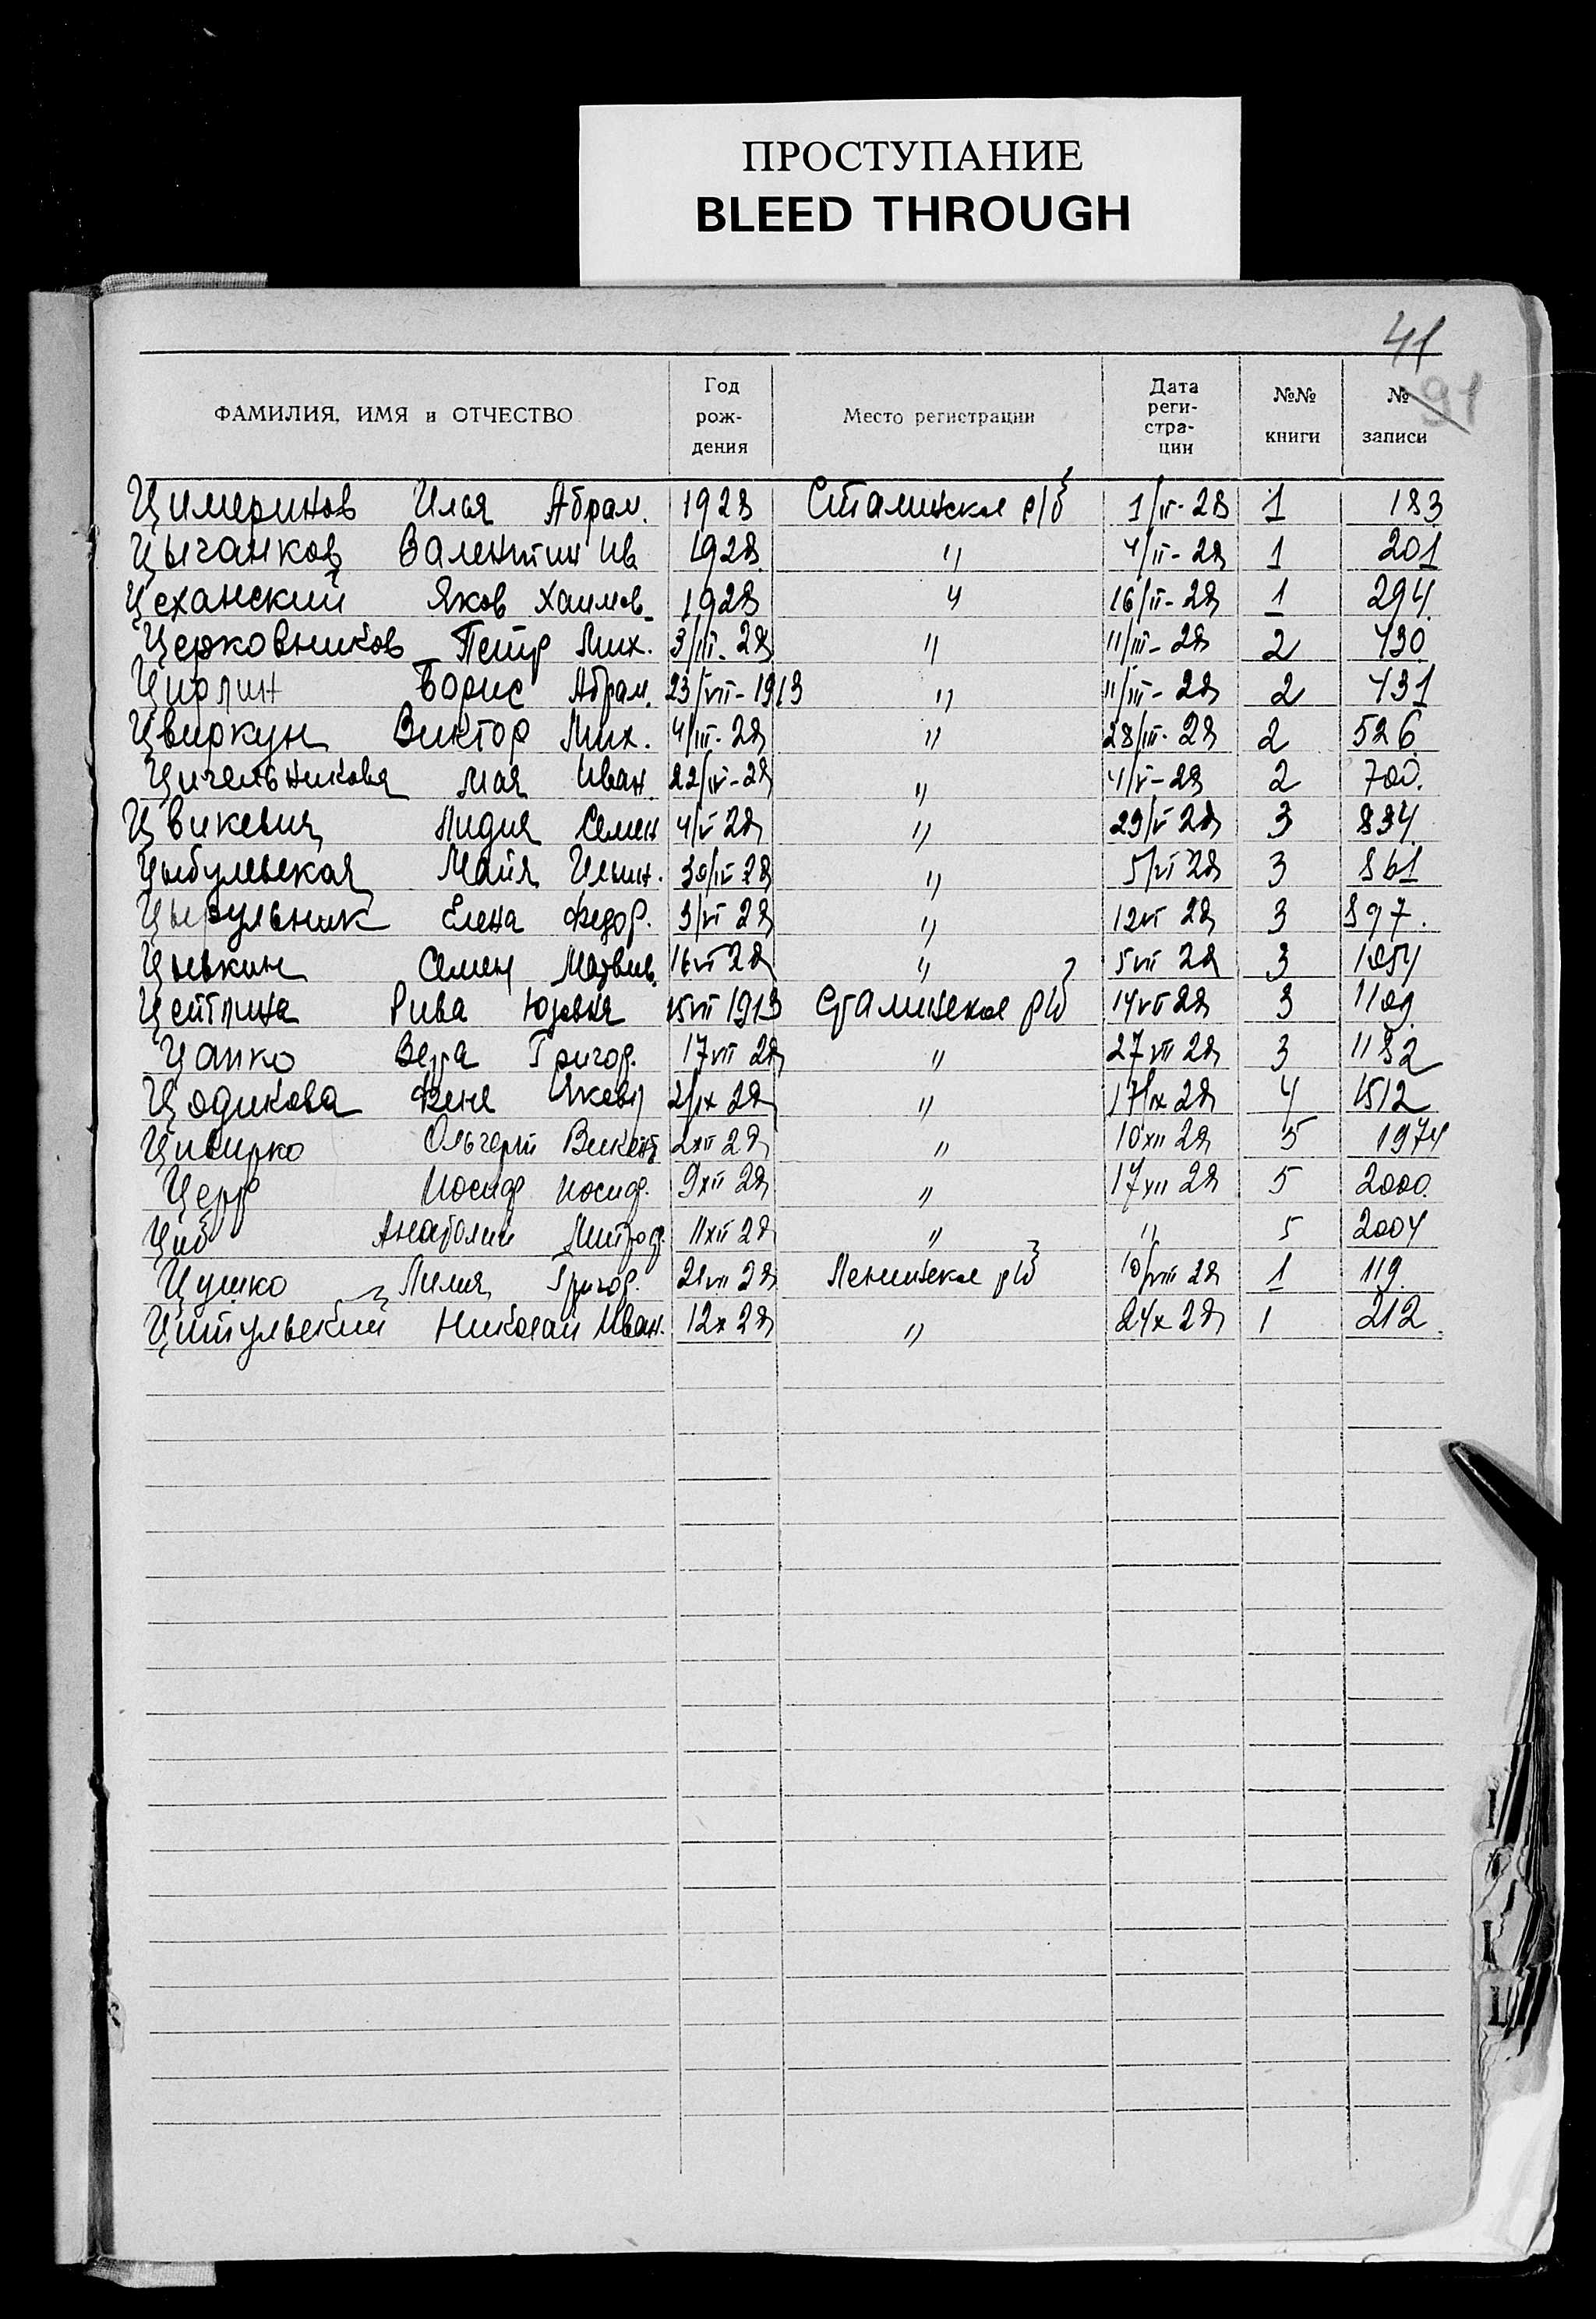 ПРОСТУПАНИЕ
BLEED THROUGH
41
91
ФАМИЛИЯ, ИМЯ и ОТЧЕСТВО Год рож- дения Место регистрации Дата реги- стра- ции №№ книги № записи
Цимеринов Илья Абрам. 1928 Сталинское р/б 1/II-28 1 183
Цыганков Валентин Ив 1928 " 4/II-28 1 201
Цеханский Яков Хаимов 1928 " 16/II-28 1 294
Церковников Петр Мих. 3/III-28 " 11/III-28 2 430
Цирлин Борис Абрам. 23/VII-1913 " 11/III-28 2 431
Цвиркун Виктор Мих. 4/III-28 " 28/III-28 2 526
Цигельникова Мая Иван. 22/IV-28 " 4/V-28 2 700.
Цвикевич Лидия Семен 4/V 28 " 29/V 28 3 834
Цыбульская Майя Ильин. 30/IV 28 " 5/VI 28 3 861
Цырульник Елена Федор. 3/VI 28 " 12VI 28 3 897.
Цывкин Семен Матвив. 16VI 28 " 5VII 28 3 1054
Цейтлина Рива Юдовня 15VII 1913 Сталинское р/б 14VII 28 3 1109
Цапко Вера Григор. 17VII 28 " 27VII 28 3 1182
Цодикова Феня Яковл 2/IX 28 " 17/IX 28 4 1512
Цивирко Ольгерт Викент 2XII 28 " 10XII 28 5 1974
Церр Иосиф Иосиф. 9XII 28 " 17XII 28 5 2000.
Циб Анатолий Митроф. 11XII 28 " " 5 2004
Цушко Лилия Григор. 21VII 28 Ленинское р/б 10/VIII 28 1 119
Цитульский Николай Иван. 12X 28 " 24X 28 1 212